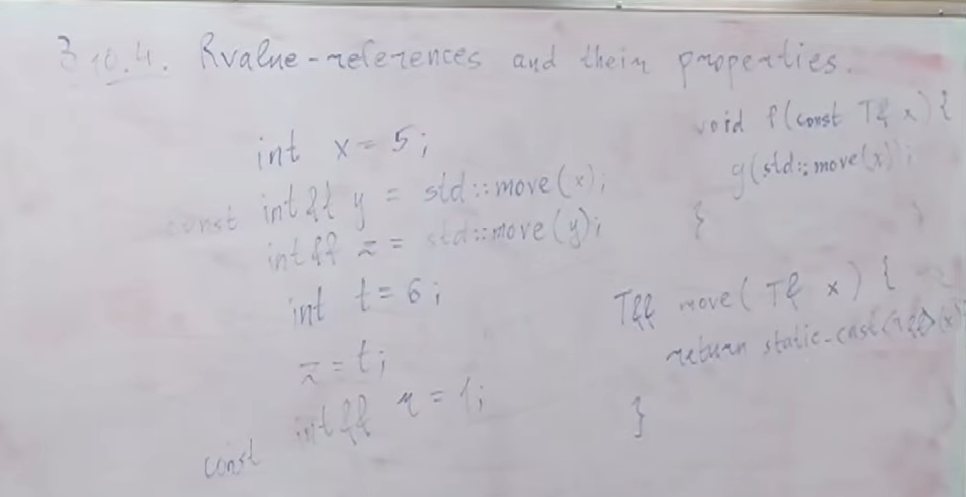 3.10.4. Rvalue-references and their properties.
int x = 5;
const int&& y = std::move(x);
int&& z = std::move(y);
int t = 6;
z = t;
const int&& r = 1;
void f(const T& x) {
g(std::move(x));
}
T&& move( T& x) {
return static_cast<T&&>(x)
}